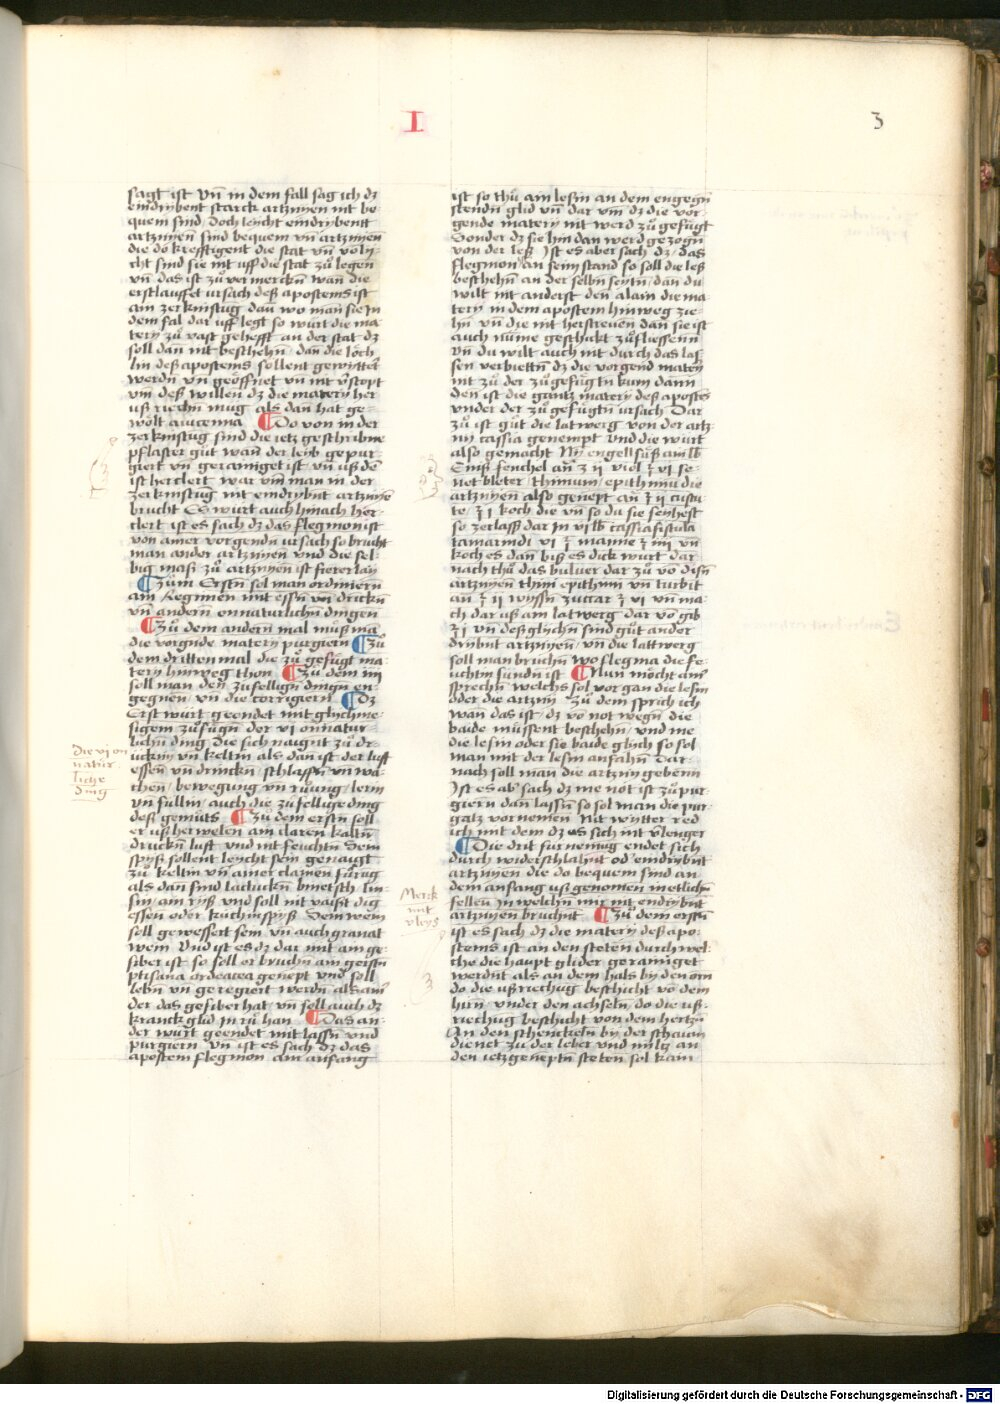 I
3
sagt ist vn̄ in dem fall sag ich dz
eindrybent starck artznyen nit be-
quem sind / Doch leycht eindrybentt
artznyen sind bequem vn̄ artznyen
die do krefftigent die stat vn̄ vō ly
cht sind sie nit uff die stat zů legen
vn̄ das ist zů vermerckn̄ wan die
erstlauffet ursach deß apostems ist
ain zerknistūg dan wo man sie jn
dem fal dar uff legt so würt die ma
tery zů vast gehefft an der stat dz
soll dan nit beschehn̄ / dan die löch
lin deß apostems sollent gewyttert
werdn̄ vn̄ geöffnet vn̄ nit v̄stopt
vm̄ deß willen dz die matery her
uß riechn̄ mug als dan hat ge-
wölt avicenna ¶ Do von in der
zerknistūg sind die ietz geschribne
pflaster gůt wan der leyb gepur-
giert vn̄ geramiget ist vn̄ uß dē
ist herclert war vm̄ man in der
zerknistūg nit eindrybn̄t artznyē
brucht Es würt auch hinach her-
clert ist es sach dz das flegmon ist
von ainer vorgendn̄ ursach so brucht
man ander artznyen vnd die sel-
big maß zů artznyen ist fiererlay
¶ Züm Erstn̄ sol man ordiniern
ain Regimen mit essn̄ vn̄ drickn̄
vn̄ andern onnatürlichn̄ dingen
¶ Zů dem andern mal můß mā
die vorgnde matery purgiern ¶ Zů
dem dritten mal die zů gefügt ma
tery hinweg thon ¶ Zů dem iiij
soll man den zůfellign̄ dingn̄ en-
gegnen / vn̄ die corrigiern ¶ Dz
Erst würt geendet mit glychme-
sigem zůfügn̄ der vi onnatur-
lichn̄ ding die sich naignt zů dr-
ücknÿ vn̄ keltin als dan ist der luft
essen vn̄ drinckn̄ / schlaffn̄ vn̄ wa-
chen / bewegung vn̄ růung / lerin
vn̄ füllin / auch die zůfellige ding
deß gemüts ¶ Zů dem erstn̄ soll
er uß herwelen ain claren kaltn̄
druckn̄ luft vnd nit feuchtn̄ Sein
spyß sollent leycht sein genaigt
zů keltin vn̄ ainer clainen fürūg
als dan sind lactuckn̄ binetsch lin-
sin / ain ryß vnd soll nit vaißt dig
essen oder kuchinspyß Sein wein
soll gewessert sein vn̄ auch granat
wein Vnd ist es dz dar mit ain ge-
siber ist so soll er bruchn̄ ain gerstn̄
ptisana ordeacea genept vnd soll
lebn̄ vn̄ geregiert werdn̄ als ainr
der das gesiber hat / vn̄ soll auch dz
kranck glid in rů han ¶ Das an-
der würt geendet mit lassn̄ vnd
purgiern Vn̄ ist es sach dz das
apostem flegmon am anfang
ist so thů ain lesin an dem engegn̄
stendn̄ glid vn̄ dar vm̄ dz die vor-
gende matery nit werd zů gefügt
Sonder dz sie hin dan werd gezogn̄
von der leß Ist es aber sach dz / das
flegmon an seim stand so soll die leß
beschehn̄ an der selbn̄ seytn / dan du
wilt nit anderst den alain die ma
tery in dem apostem hinweg zie-
hn̄ vn̄ die nit herstreuen dan sie ist
auch nūme geschickt zůfliessenn
vn̄ du wilt auch nit durch das las-
sen verbiettn̄ dz die vorgend matery
nit zů der zůgefügtn̄ kum dann
den ist die gantz matery deß apostēs
vnder der zůgefügtn̄ ursach Dar
zů ist gůt die latwerg von der artz-
ny cassia genempt vnd die würt
also gemacht Nÿ engellsüß ain lb
Eniß fenchel an̄ ʒ ij viol ʒ vj se-
net bleter / thimium / epithimii die
artznyen also genept an̄ ℥ ij cuscu-
te / ℥ j koch die vn̄ so du sie seyhest
so zerlaß dar in vj lb cassiafistula
tamarindi vj ℥ manne ℥ iiij vn̄
koch es dan biß es dick würt dar
nach thů das bulver dar zů vō disn̄
artznyen thimi epithimi vn̄ turbit
an̄ ℥ ij wyssn̄ zuccar ℥ vj vn̄ ma-
ch dar uß ain latwerg dar vō gib
℥ j vn̄ deßglychn̄ sind gůt ander
drybn̄t artznyen / vn̄ die lattwerg
soll man bruchn̄ wo flegma die fe-
uchtin sündn̄ ist ¶ Nun möcht ainr
sprechn̄ / welchs sol vorgan die lesin
oder die artznÿ Zů dem sprich ich
wan das ist / dz vō not wegn̄ die
baide müssent beschehn̄ / vnd me
die lesin oder sie baide glych so sol
man mit der lesin anfahn̄ Dar-
nach soll man die artzny gebenn
Ist es ab' sach dz me not ist zů pur
giern dan lassn̄ so sol man die pur
gatz vornemen Nit wytter red
ich mit dem dz es sich nit v̄lenger
¶ Die drit fürnemūg endet sich
durch widerschlahn̄t od' eindrybn̄t
artznyen die do bequem sind an
dem anfang uß genomen netlichn̄
fellen In welchn̄ mir nit endrybn̄t
artznyen bruchn̄t ¶ Zů dem erstn̄
ist es sach dz die matery deß apo-
stems ist an den steten durch wel-
che die haupt glider geramiget
werdn̄t als an dem hals by den orn
do die ußriechug beschicht vō dem
hirn / vnder den achseln / do die uß-
riechug beschicht von dem hertzn̄
An den schenckeln by der scham
dienet zů der leber vnd miltz an
den ietzgeneptn̄ steten sol kain
die vi on
natür-
liche
ding
Merck
mit
vleys
Digitalisierung gefördert durch die Deutsche Forschungsgemeinschaft - DFG